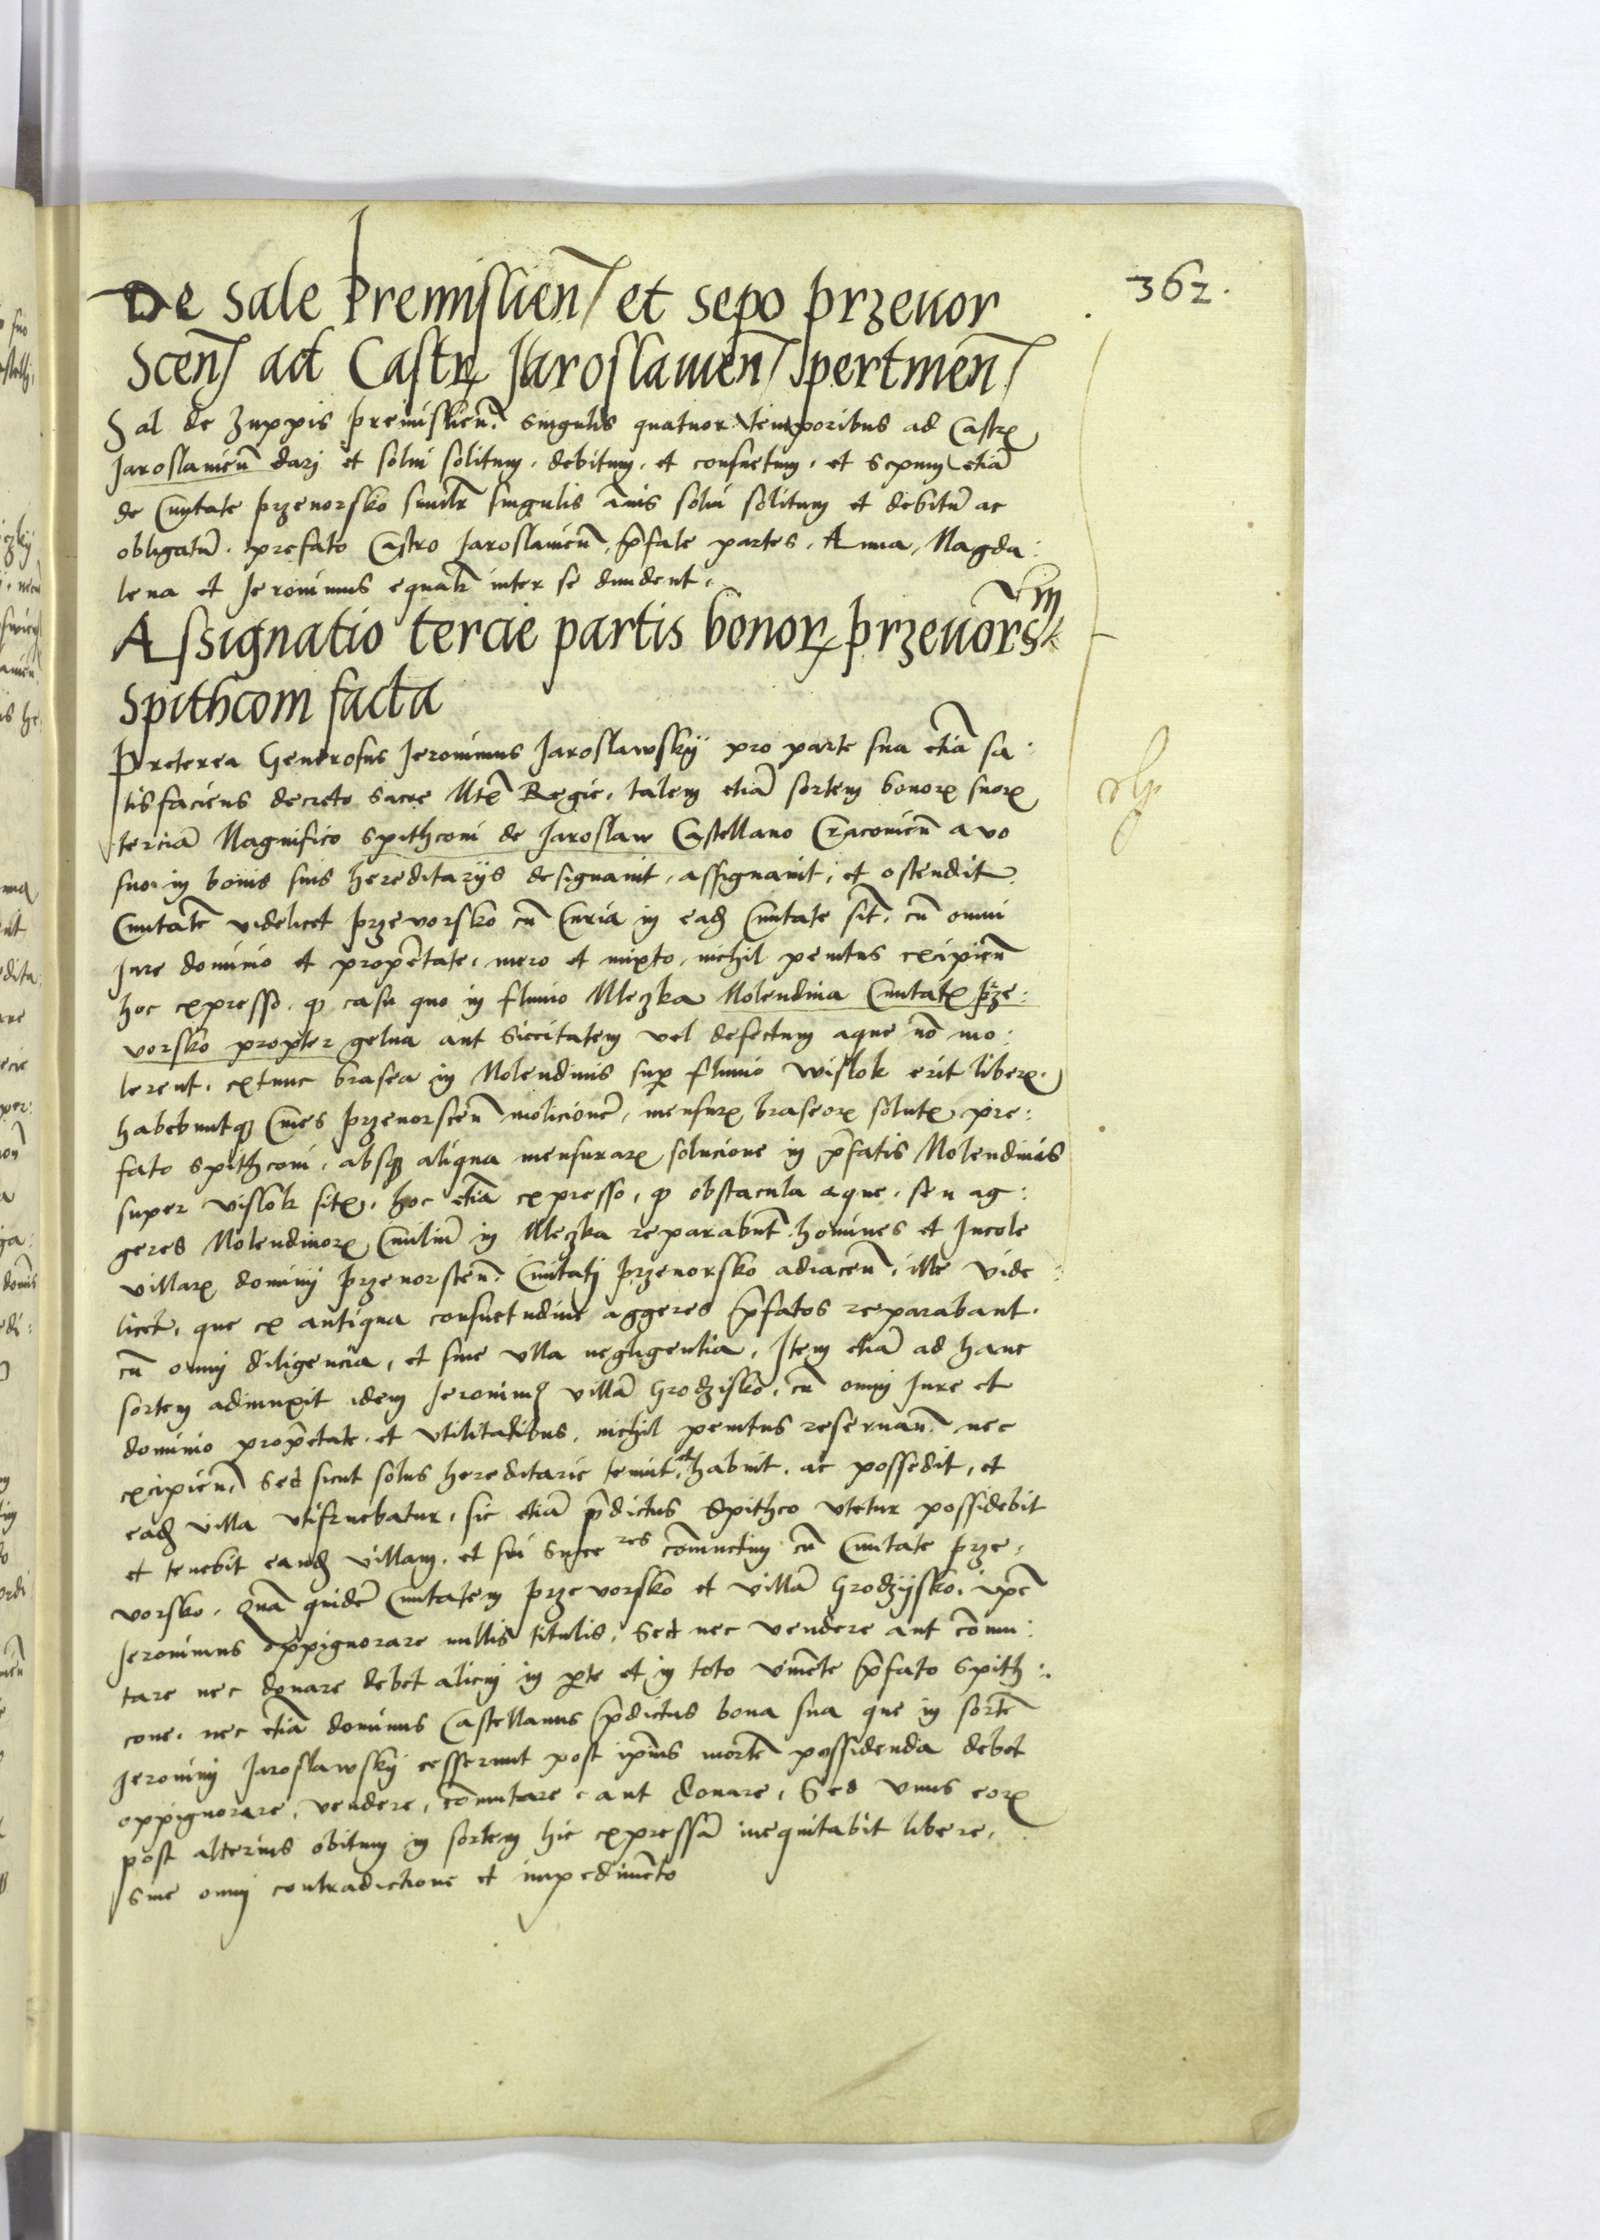 362.
De sale Premislien̄ et sepo przevor
scen̄ ad Castrꝝ Jaroslamen̄ pertinen̄
Sal de Zuppis premislien̄. singulis quatuor temporibus ad Castrꝝ
Jaroslamien̄ darj et solui solitum. debitum. et consuetum. et sepum etiā
de Ciuitate przeuorsko similr̄ singulis ānis solui solitum et debitū ac
obligatū. prefato Castro Jaroslamien̄. p̄fate partes. Anna, Magda:
lena et Jeronimus equalr̄ inter se diuident.
Assignatio tercie partis bonorꝝ przeuorsk
Spithcom facta
Preterea Generosus Jeronimus Jaroslawskÿ pro parte sua etiā sa:
tisfaciens decreto sacre Mtꝭ Regie. talem etiā sortem bonorꝝ suorꝝ
terciā Magnifico spithconi de Jaroslaw Castellano Cracouien̄ auo
suo in bonis suis hereditarÿs designauit, assignauit, et ostendit
Ciuitatē videlicet przeworsko cū Curia in eadꝫ Ciuitate sit̄. cū omni
Jure dominio et prop̄etate. mero et mixto, nichil penitus excipien̄
hoc expresso. ꝙ casu quo in fluuio Mleczka Molendina Ciuitatꝭ prze:
vorsko propter gelua aut siccitatem vel defectum aque nō mo:
lerent. extunc brasea in Molendinis suꝑ fluuio wislok erit liberꝝ.
habebuntqꝫ Ciues przeuorscen̄ molicionē, mensurꝝ braseorꝝ solutꝭ pre:
fato spithconi, absqꝫ aliqua mensurarꝝ solucione in p̄fatis Molendinis
super vislok sitꝭ. hoc etiā expresso, ꝙ obstacula aque. seu ag:
geres Molendinorꝝ Ciuiliū in Mleczka reparabūt homines et Incole
villarꝝ dominij przeuorscen̄. Ciuitatj przeuorsko adiacen̄, ille vide
licet, que ex antiqua consuetudine aggeres p̄fatos reparabant.
cū omnj diligencia, et sine vlla negligentia, Item etiā ad hanc
sortem adiunxit idem Jeronimꝰ villā Grodzisko. cū omnj Jure et
dominio prop̄etate. et vtilitatibus, nichil penitus reseruan̄. nec
excipien̄. sed sicut solus hereditarie tenuit. et habuit. ac possedit, et
eadꝫ villa vtifruebatur, sic etiā p̄dictus Spithco vtetur possidebit
et tenebit eandꝫ villam. et sui succeres cōiunctim cū Ciuitate prze:
vorsko. Quā quidē Ciuitatem przevorsko et villā Grodzÿsko. ip̄e
Jeronimus oppignorare nullis titulis, sed nec vendere aut cōmu:
tare nec donare debet alicui in ꝑte et in toto viuēte p̄fato spith:
cone. nec etiā dominus Castellanus p̄dictus bona sua que in sortē
Jeronimj Jaroslawskj cesserunt post ip̄ius mortē possidenda debet
oppignorare, vendere, cōmutare, aut donare, sed vnus eorꝝ
post alterius obitum in sortem hic expressā inequitabit libere,
sine omnj contradictione et impedimēto